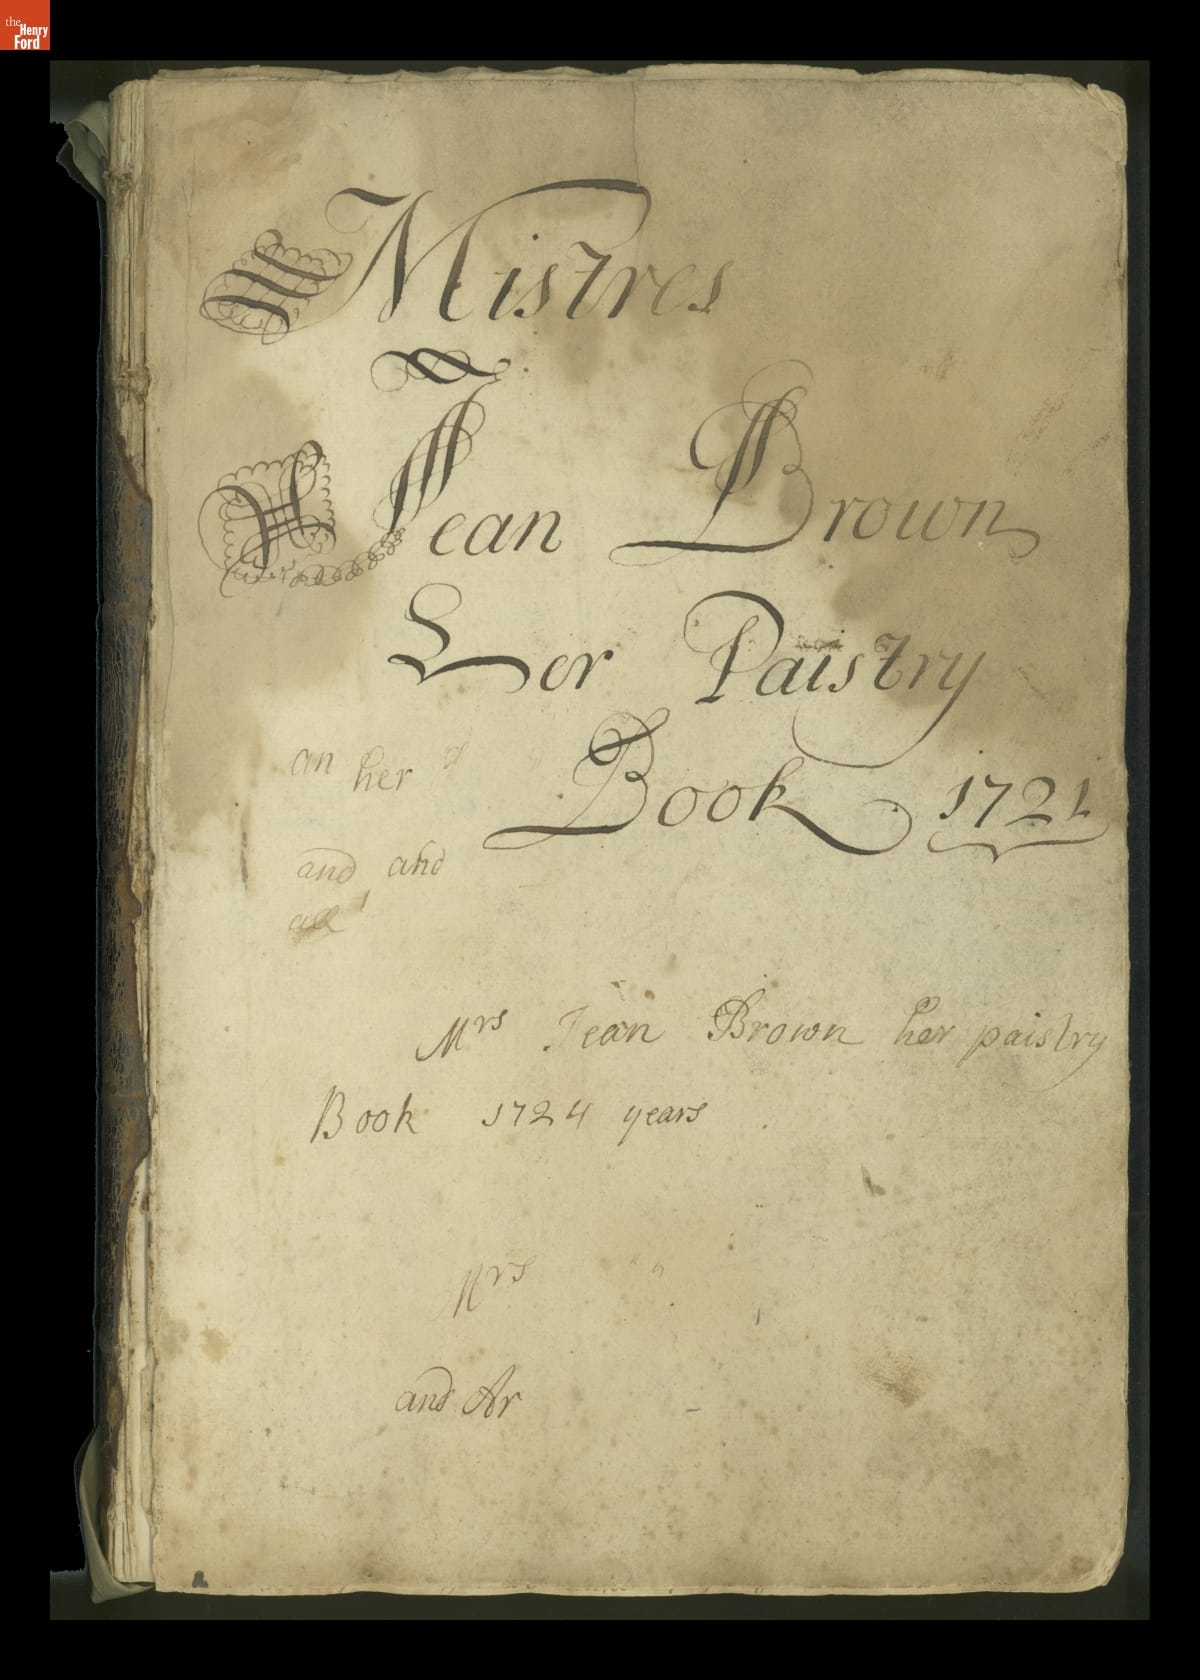 the Henry Ford
Mistres
Jean Brown
Her Paistry
Book 1721
an her
and and
all
Mrs Jean Brown her paistry
Book 1724 years
Mrs
and Ar